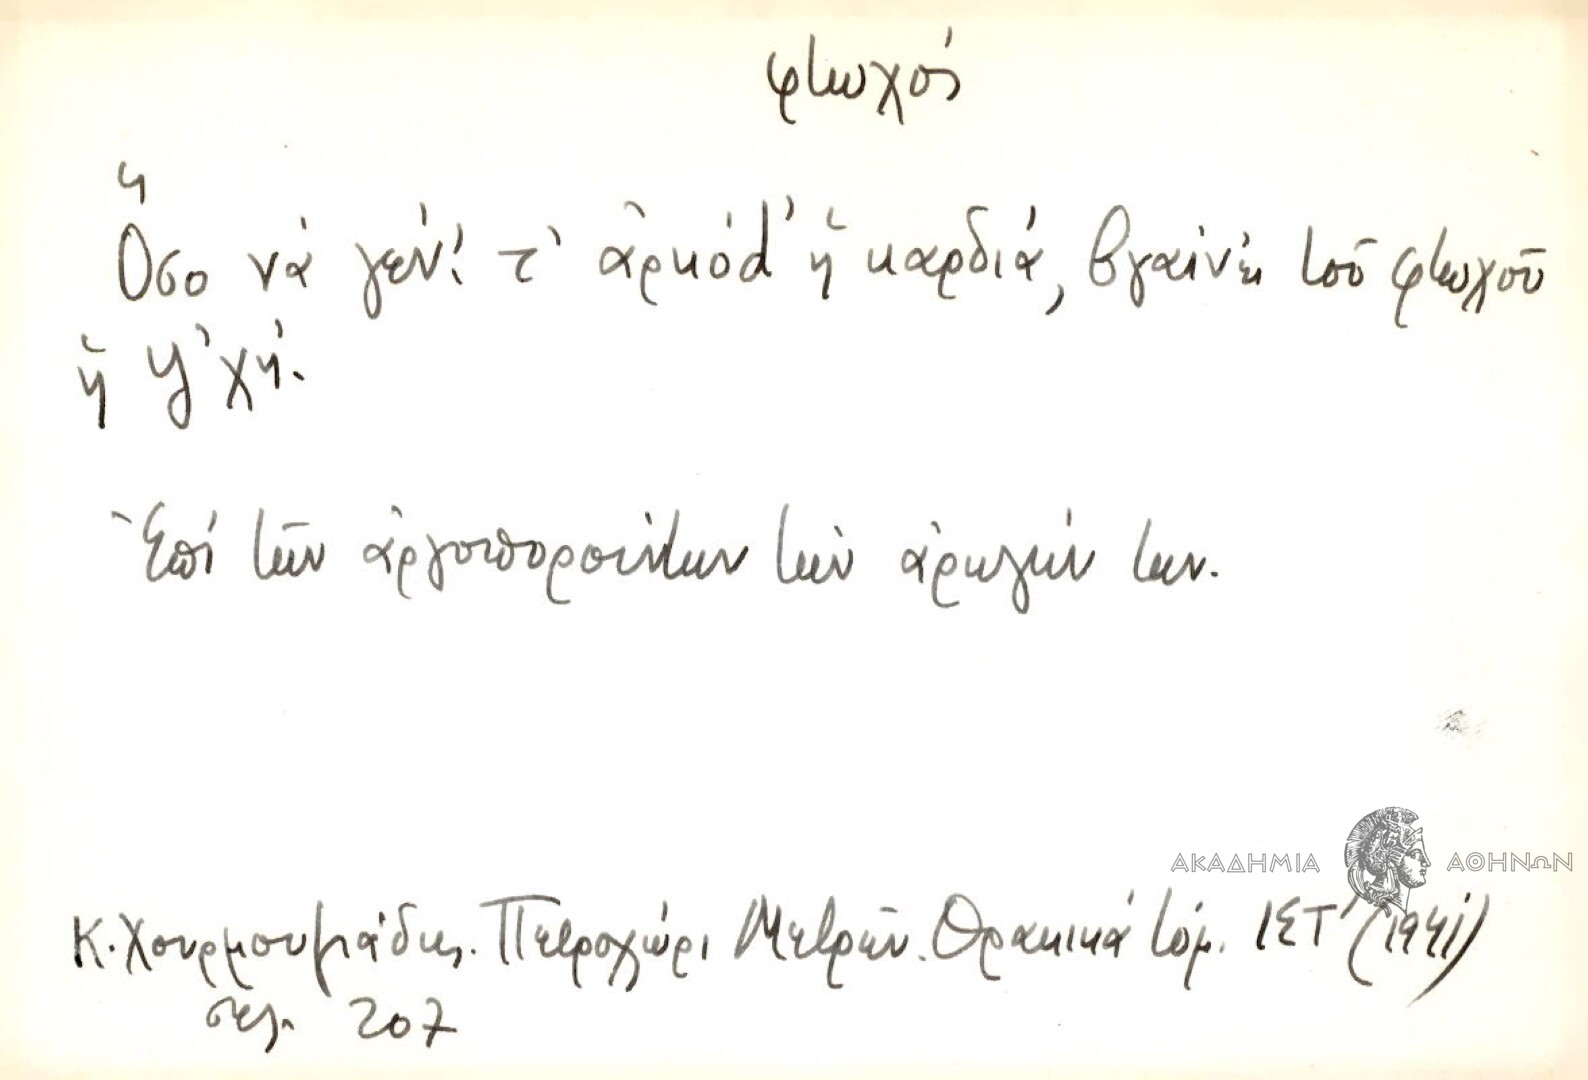 φτωχός
Ὅσο νά γέν' τ' ἀρκόd' ἡ καρδιά, βγαίν' τοῦ φτωχοῦ
ἡ ψ'χή.
Ἐπί τῶν ἀργοπορούντων τήν ἀρωγήν των.
ΑΚΑΔΗΜΙΑ ΑΘΗΝΩΝ
Κ. Χουρμουζιάδης. Πετροχώρι Μετρῶν. Θρακικά τόμ. ΙΣΤ' (1941)
σελ. 207